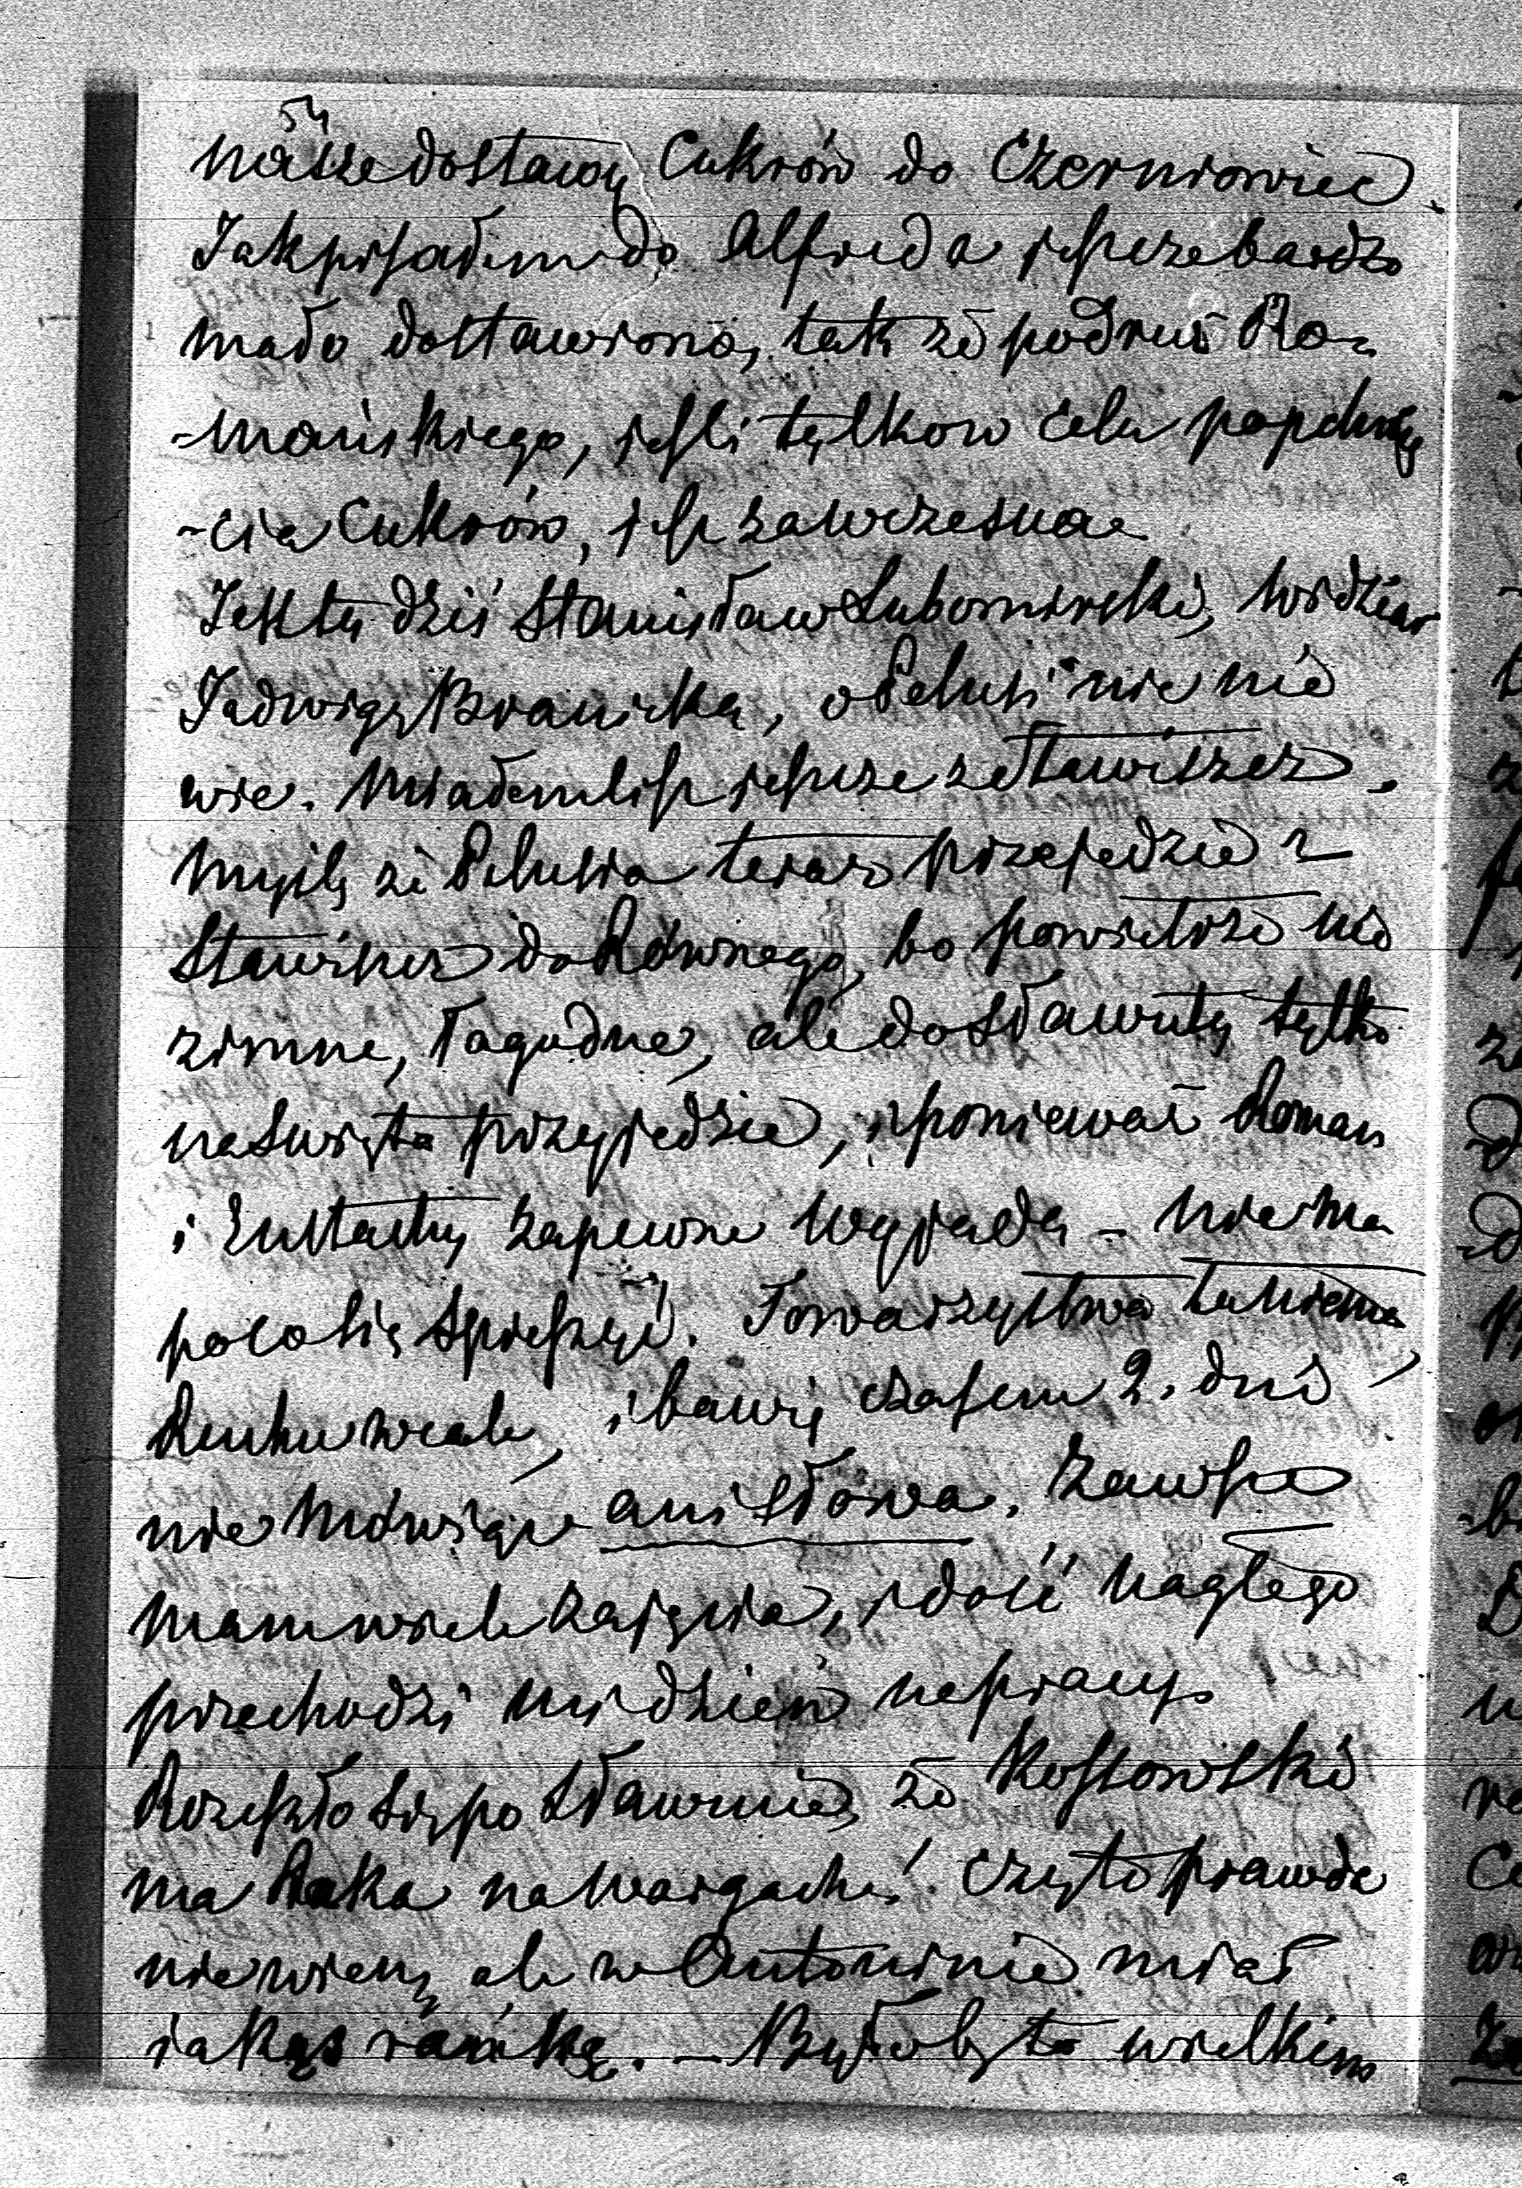 54
nasze dostawy Cukrów do Czerniowiec.
Jak pisałem do Alfreda jeszcze bardzo
mało dostawiono, tak że podróż Ro-
-mańskiego, jeśli tylko w celu popchnię
-cia Cukrów, jest zawczesna.
Jest tu dziś Stanisław Lubomirski, widział
Jadwigę Branicką, o Pelusi nic nie
wie. Miałem list jeszcze ze Stawiszcz.
Myślę że Pelusia teraz przejedzie z
Stawiszcz do Równego, bo powietrze nie
zimne, łagodne, ale do Sławuty tylko
na Święta przyjedzie, i ponieważ Roman
i Eustachy zapewne wyjadą – nie ma
po co się spieszyć. Towarzystwa tu nie ma
Ruchu wcale, i bawię czasem 2. dni
nie mówiąc ani słowa. Zawsze
mam wiele zajęcia, i dość nagłego
przechodzi mi dzień na pracy.
Rozeszło się po Sławucie, że Kossowski
ma Raka na wargach! Czy to prawda
nie wiem, ale w Antoninie miał
jakąś rankę. – Byłoby to wielkiem